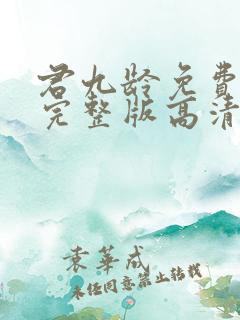 君九龄免费
完整版高清
袁華成
未经同意禁止转载